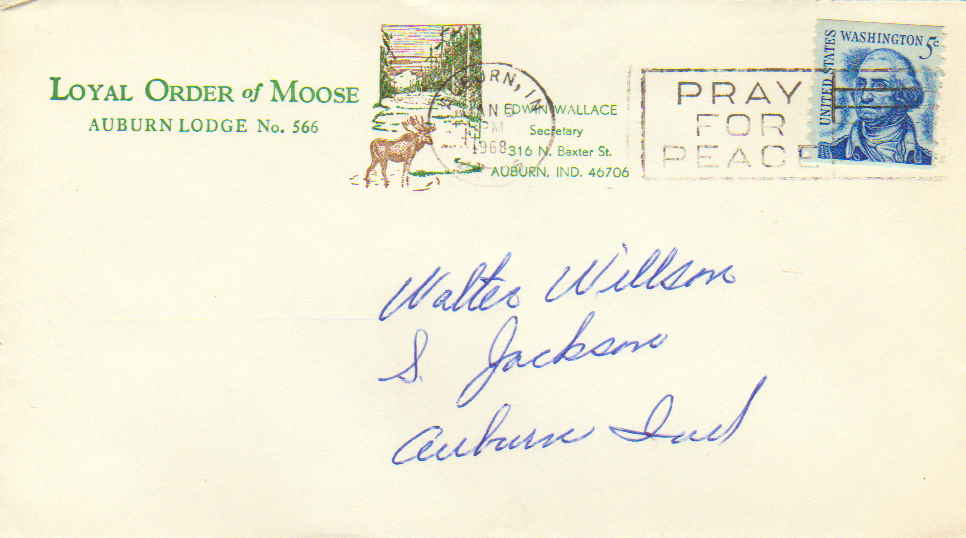 LOYAL ORDER of MOOSE
AUBURN LODGE No. 566
EDWIN WALLACE
Secretary
316 N. Baxter St.
AUBURN, IND. 46706
AUBURN, IN
JAN
PM
1968
PRAY
FOR
PEACE
UNITED STATES
WASHINGTON 5c
Walter Willson
S. Jackson
Auburn Ind